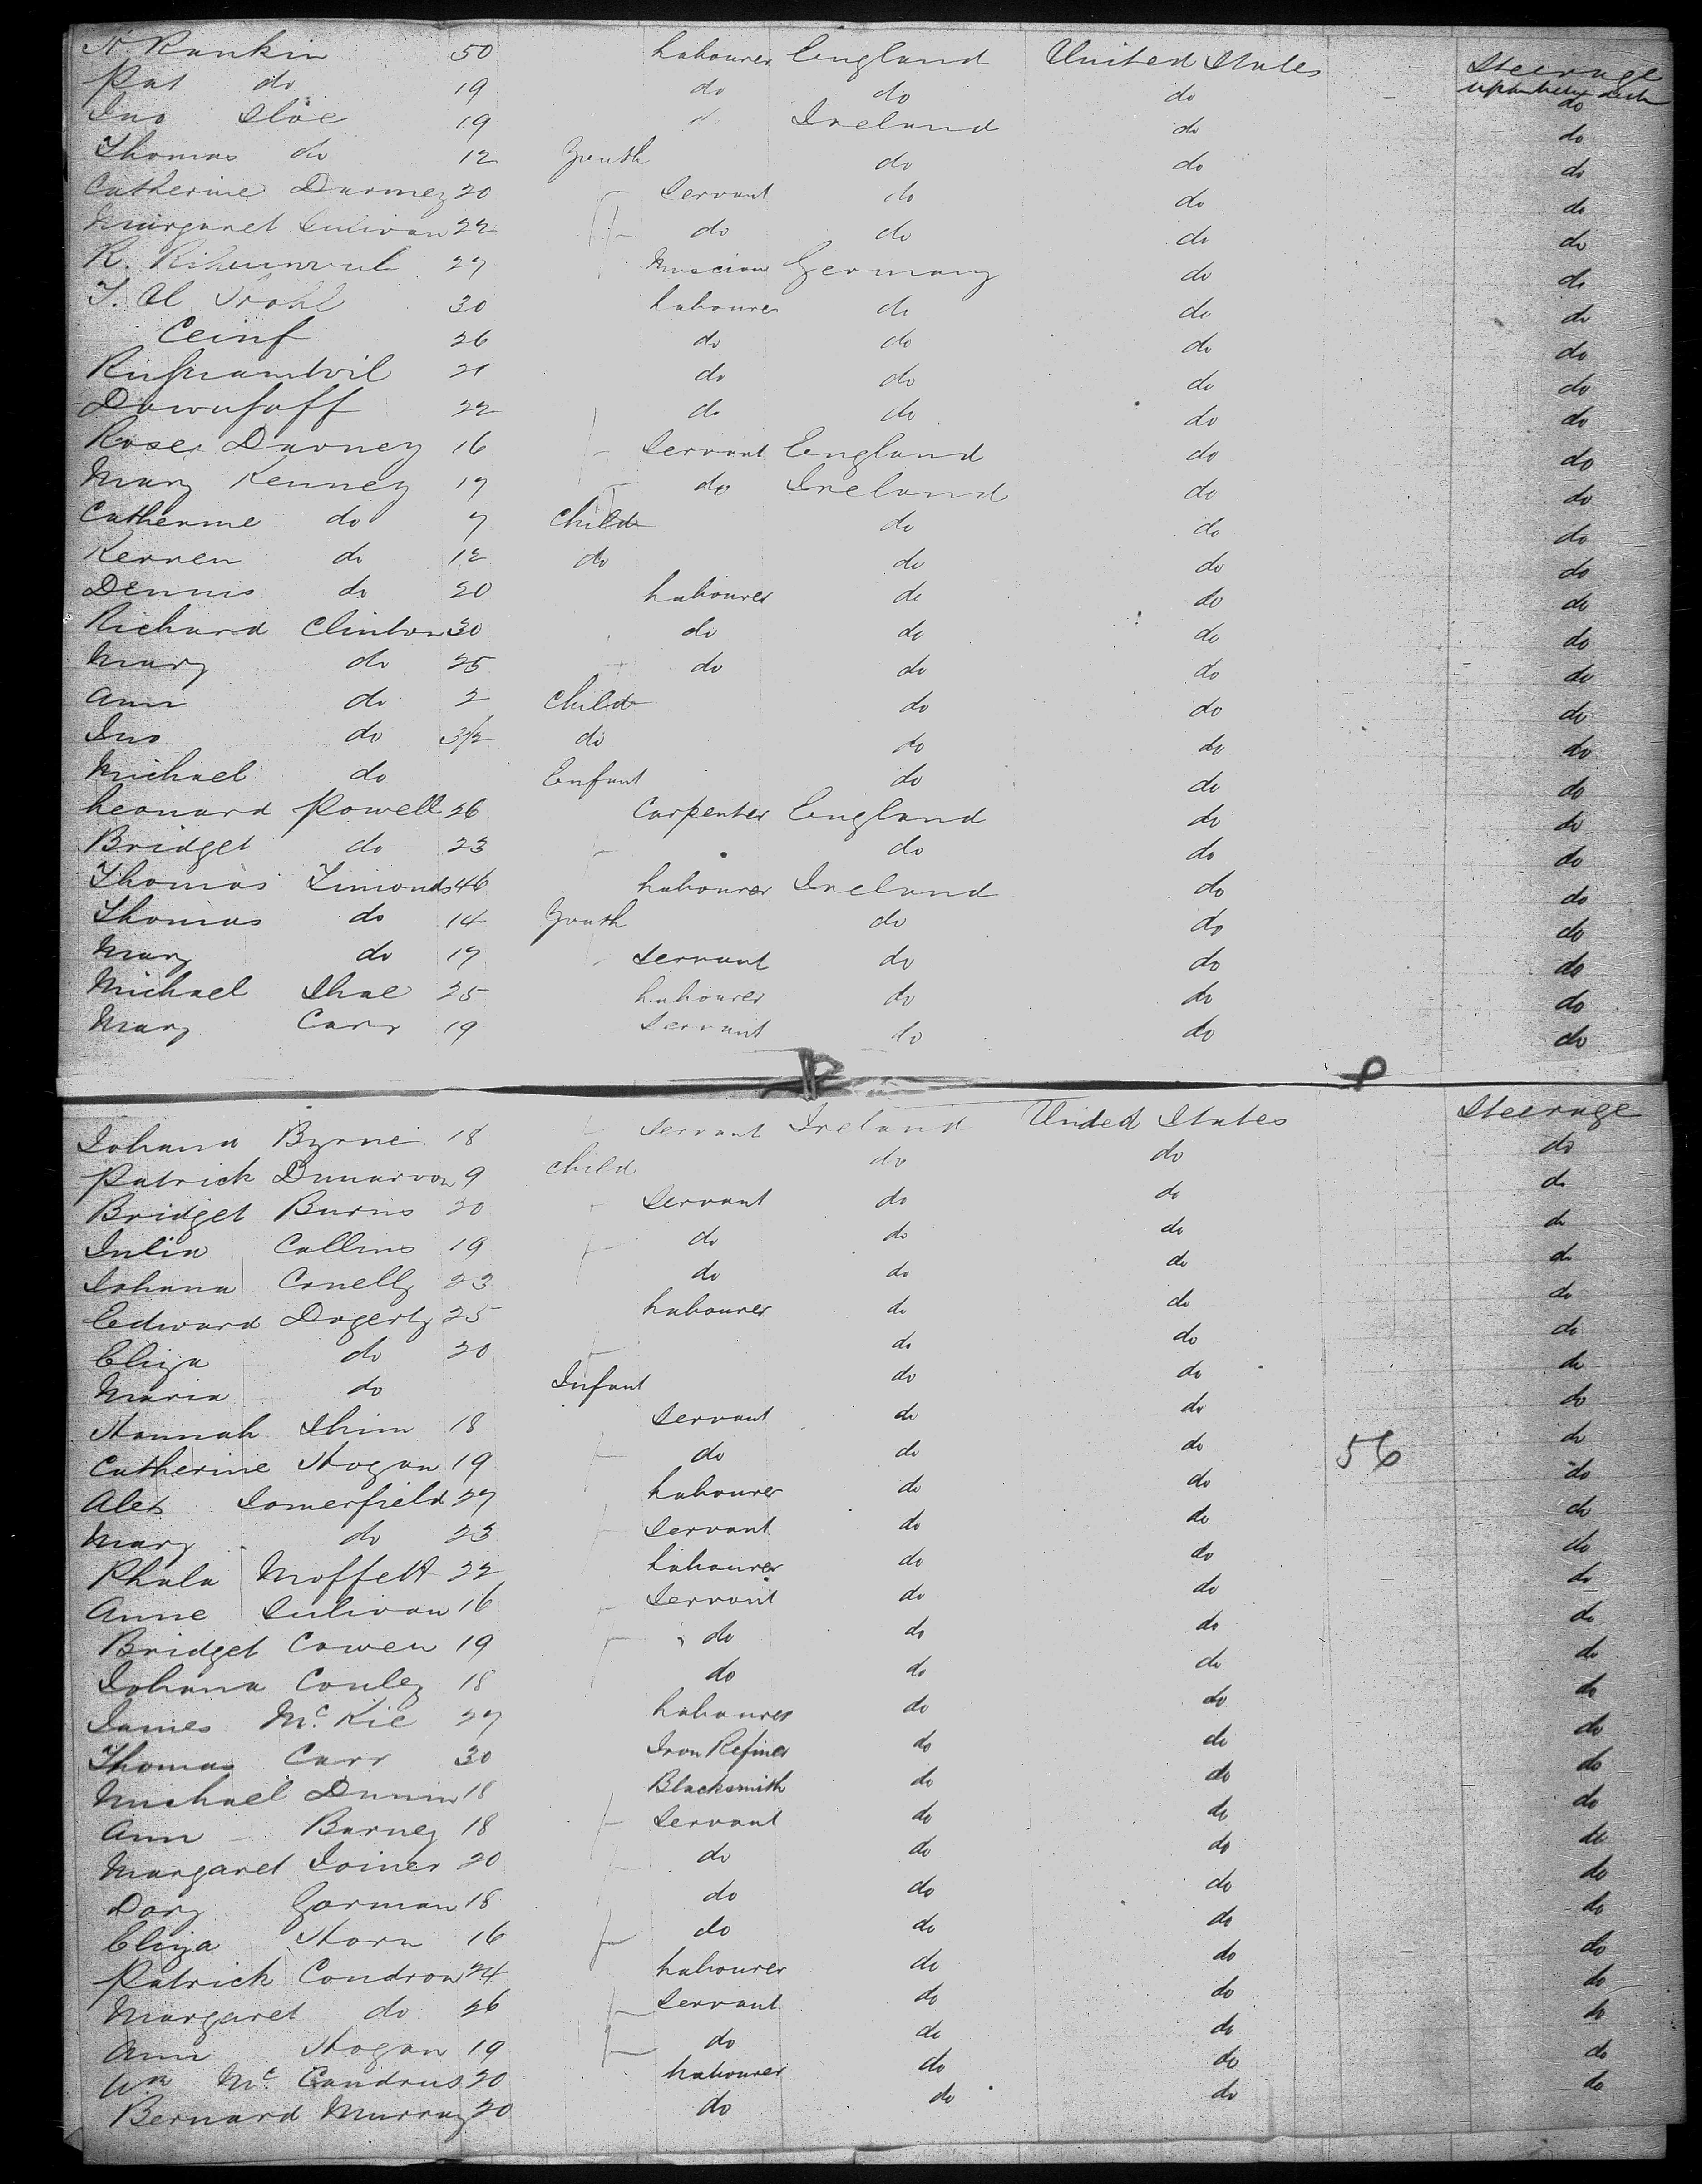 N. Rankin 50 Labourer England United States Steerage
Pat do 19 do do do do
Jno Sloe 19 d. Ireland do do
Thomas do 12 Youth do do do
Catherine Darmey 20 Servant do do do
Margaret Sulivan 22 do do do do
R. 27 Muscian Germany do do
30 Labourer do do do
Ceinf 26 do do do do
21 do do do do
22 do do do do
Rose Davney 16 Servant England do do
Mary Kenney 17 do Ireland do do
Catherine do 7 Child do do do
Kerren do 12 do do do do
Dennis do 20 Labourer do do do
Richard Clinton 30 do do do do
Mary do 25 do do do do
Ann do 2 Child do do do
Jno do 3/12 do do do do
Michael do Enfant do do do
Leonard Powell 26 Carpenter England do do
Bridget do 23 do do do
Thomas Simonds 46 Labourer Ireland do do
Thomas do 14 Youth do do do
Mary do 17 Servant do do do
Michael Shae 25 Labourer do do do
Mary Carr 19 Servant do do do
Johana Byrne 18 Servant Ireland United States Steerage
Patrick Dunarvon 9 Child do do do
Bridget Burns 20 Servant do do do
Julia Collins 19 do do do do
Johana Conelly 23 do do do do
Edward Dogerty 25 Labourer do do do
Eliza do 20 do do do
Maria do Infant do do do
Hannah Shim 18 Servant do do do
Catherine Hogan 19 do do do 56 do
Alex Somerfield 27 Labourer do do do
Mary do 23 Servant do do do
Phala Moffett 22 Labourer do do do
Anne Sulivan 16 Servant do do do
Bridget Cowen 19 do do do do
Johana Conley 18 do do do do
James McKie 27 Labourer do do do
Thomas Carr 30 Iron Refiner do do do
Michael Dunin 18 Blacksmith do do do
Ann Barney 18 Servant do do do
Margaret Joiner 20 do do do do
Dory Gorman 18 do do do do
Eliza Horn 16 do do do do
Patrick Condron 24 Labourer do do do
Margaret do 26 Servant do do do
Ann Hogan 19 do do do do
Wm McCandrus 20 Labourer do do do
Bernard Murray 20 do do do do